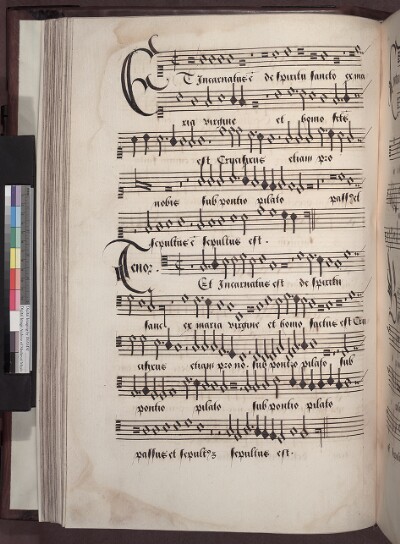 ET Incarnatus ē de spiritu sancto ex ma
ria virgine et homo fctū
est Crucifixus etiam pro
nobis sub pontio pilato passꝰ et
sepultus ē sepultus est .
Tenor .
Et Incarnatus est de spiritu
sanct ex maria virgine et homo factus est Cru
cifixus etiam pro no sub pontio pilato sub
pontio pilato sub pontio pilato
passus et sepultꝰ sepultus est .